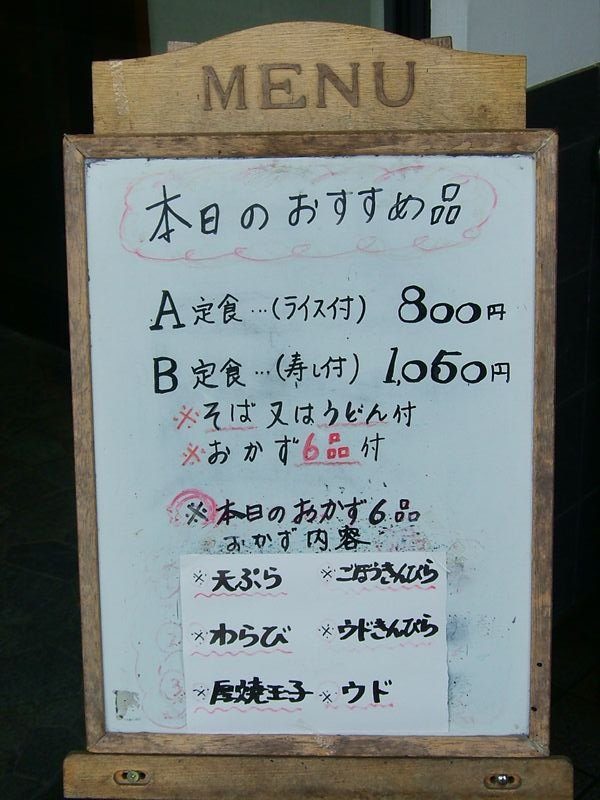 MENU
本日のおすすめ品
A定食…(ライス付) 800円
B定食…(寿し付) 1,050円
※そば又はうどん付
※おかず6品付
※本日のおかず6品
おかず内容
※天ぷら ※ごぼうきんぴら
※わらび ※ウドきんぴら
※厚焼玉子 ※ウド